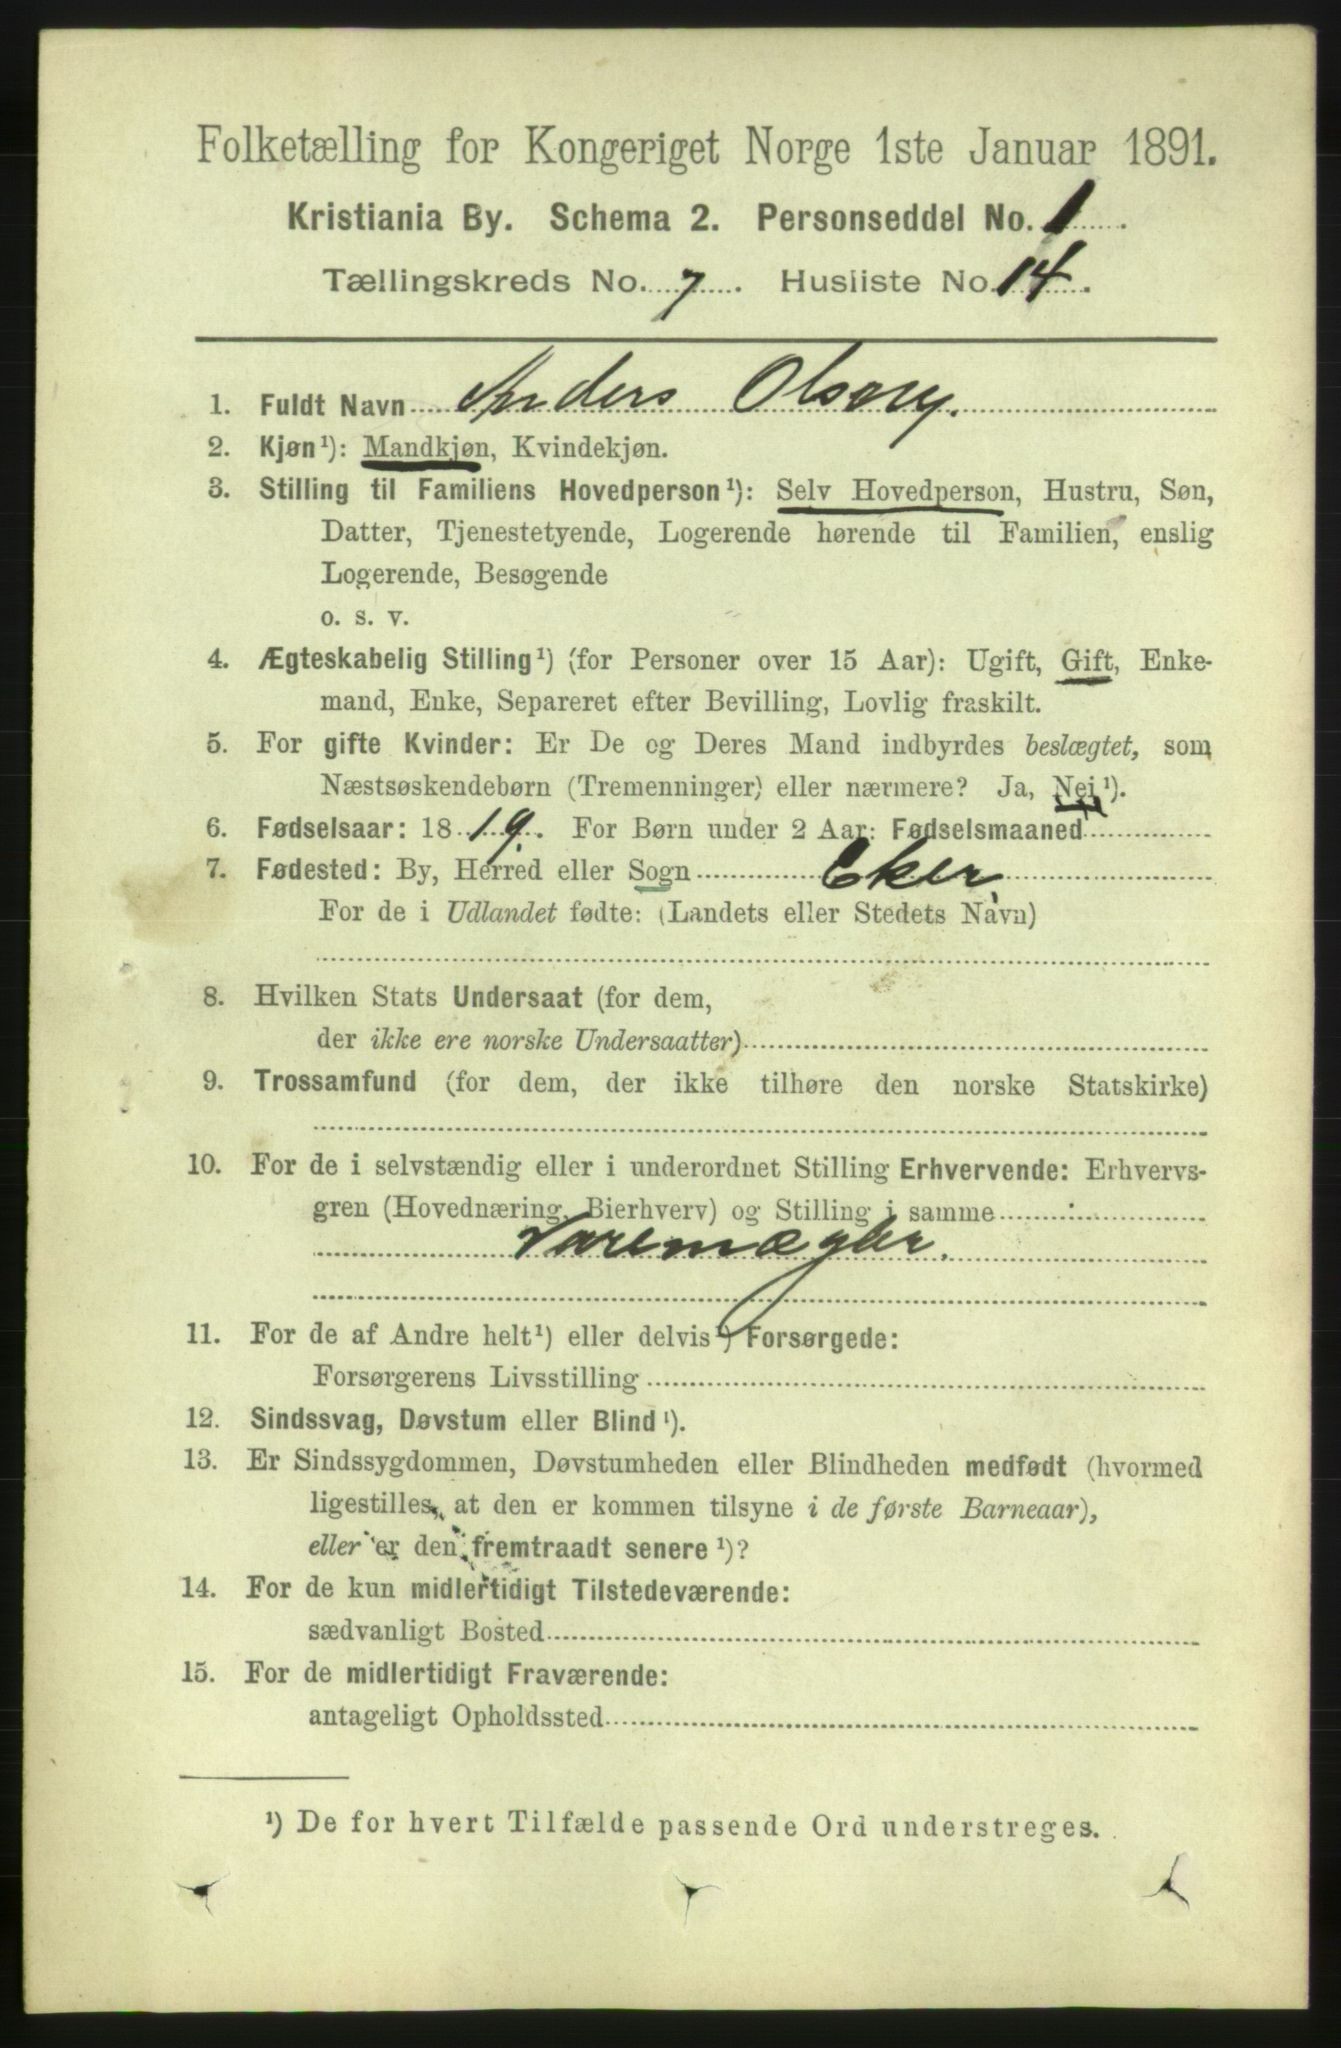 Folketælling for Kongeriget Norge 1ste Januar 1891.
Kristiania By. Schema 2. Personseddel No. 1.
Tællingskreds No. 7. Husliste No. 14.
1. Fuldt Navn Anders Olsen.
2. Kjøn¹): Mandkjøn, Kvindekjøn.
3. Stilling til Familiens Hovedperson¹): Selv Hovedperson, Hustru, Søn,
Datter, Tjenestetyende, Logerende hørende til Familien, enslig
Logerende, Besøgende
o. s. v.
4. Ægteskabelig Stilling¹) (for Personer over 15 Aar): Ugift, Gift, Enke-
mand, Enke, Separeret efter Bevilling, Lovlig fraskilt.
5. For gifte Kvinder: Er De og Deres Mand indbyrdes beslægtet, som
Næstsøskendebørn (Tremenninger) eller nærmere? Ja, Nei¹).
6. Fødselsaar: 1819. For Børn under 2 Aar: Fødselsmaaned
7. Fødested: By, Herred eller Sogn Eker,
For de i Udlandet fødte: (Landets eller Stedets Navn)
8. Hvilken Stats Undersaat (for dem,
der ikke ere norske Undersaatter)
9. Trossamfund (for dem, der ikke tilhøre den norske Statskirke)
10. For de i selvstændig eller i underordnet Stilling Erhvervende: Erhvervs-
gren (Hovednæring, Bierhverv) og Stilling i samme
Varemægler.
11. For de af Andre helt¹) eller delvis¹) Forsørgede:
Forsørgerens Livsstilling
12. Sindssvag, Døvstum eller Blind¹).
13. Er Sindssygdommen, Døvstumheden eller Blindheden medfødt (hvormed
ligestilles, at den er kommen tilsyne i de første Barneaar),
eller er den fremtraadt senere¹)?
14. For de kun midlertidigt Tilstedeværende:
sædvanligt Bosted
15. For de midlertidigt Fraværende:
antageligt Opholdssted
¹) De for hvert Tilfælde passende Ord understreges.